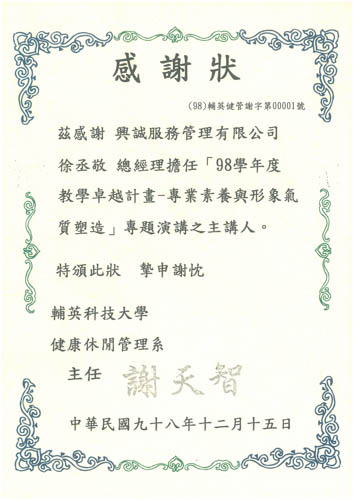 感謝狀
(98)輔英健管謝字第00001號
茲感謝 興誠服務管理有限公司
徐丞敬 總經理擔任「98學年度
教學卓越計畫-專業素養與形象氣
質塑造」專題演講之主講人。
特頒此狀 摯申謝忱
輔英科技大學
健康休閒管理系
主任 謝天智
中華民國九十八年十二月十五日